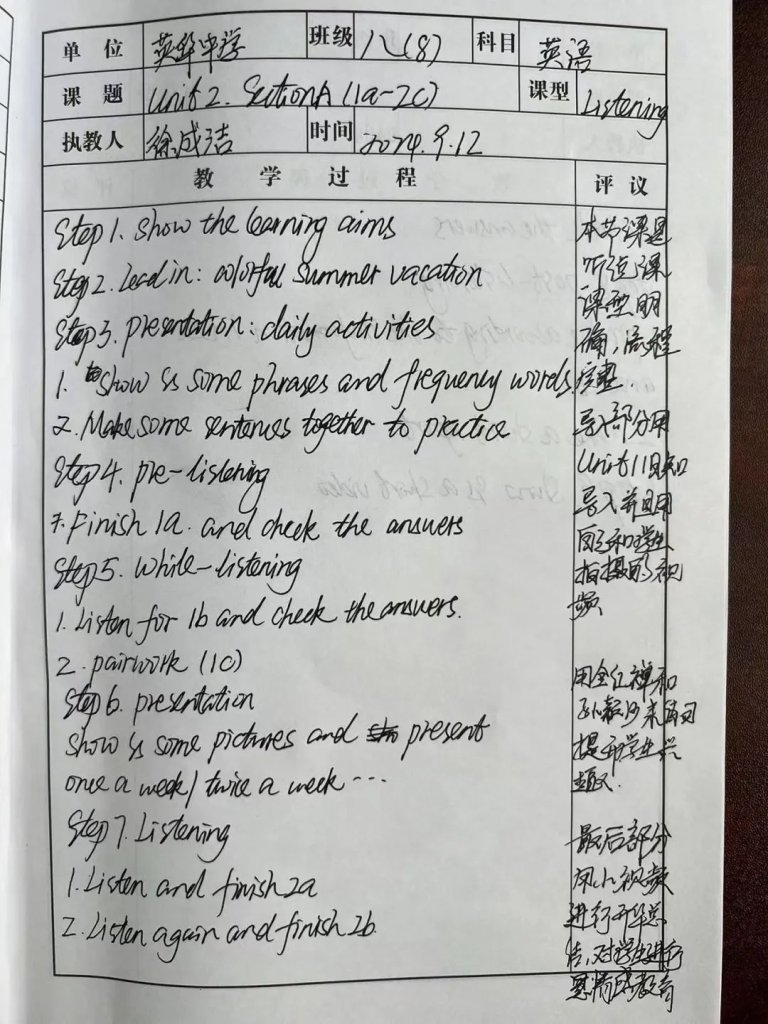 单 位 英华中学 班级 八(8) 科目 英语
课 题 Unit 2. SectionA (1a-2c) 课型 Listening
执教人 徐成洁 时间 2024.9.12
教 学 过 程 评 议
Step 1. Show the learning aims
Step 2. Lead in: colorful summer vacation
Step 3. presentation: daily activities
1. show Ss some phrases and frequency words.
2. Make some sentences together to practice
Step 4. pre-listening
1. Finish 1a. and check the answers
Step 5. While-listening
1. Listen for 1b and check the answers.
2. pairwork (1c)
Step 6. presentation
show Ss some pictures and present
once a week / twice a week ...
Step 7. Listening
1. Listen and finish 2a
2. Listen again and finish 2b.
本节课是
听说课
课型明
确,流程
完整.
导入部分用
Unit 1 旧知
导入并且用
自己和学生
拍摄的视
频
用全红婵和
孙颖莎来
提升学生兴
趣.
最后部分
用小视频
进行升华总
结,对学生进行
感情教育